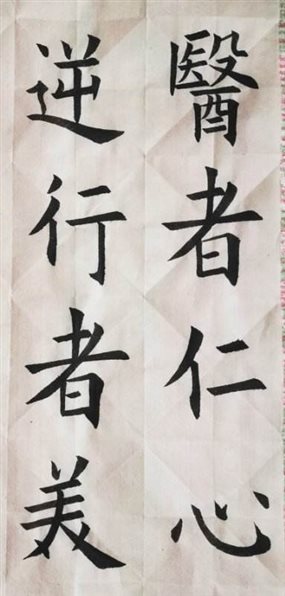 醫者仁心
逆行者美